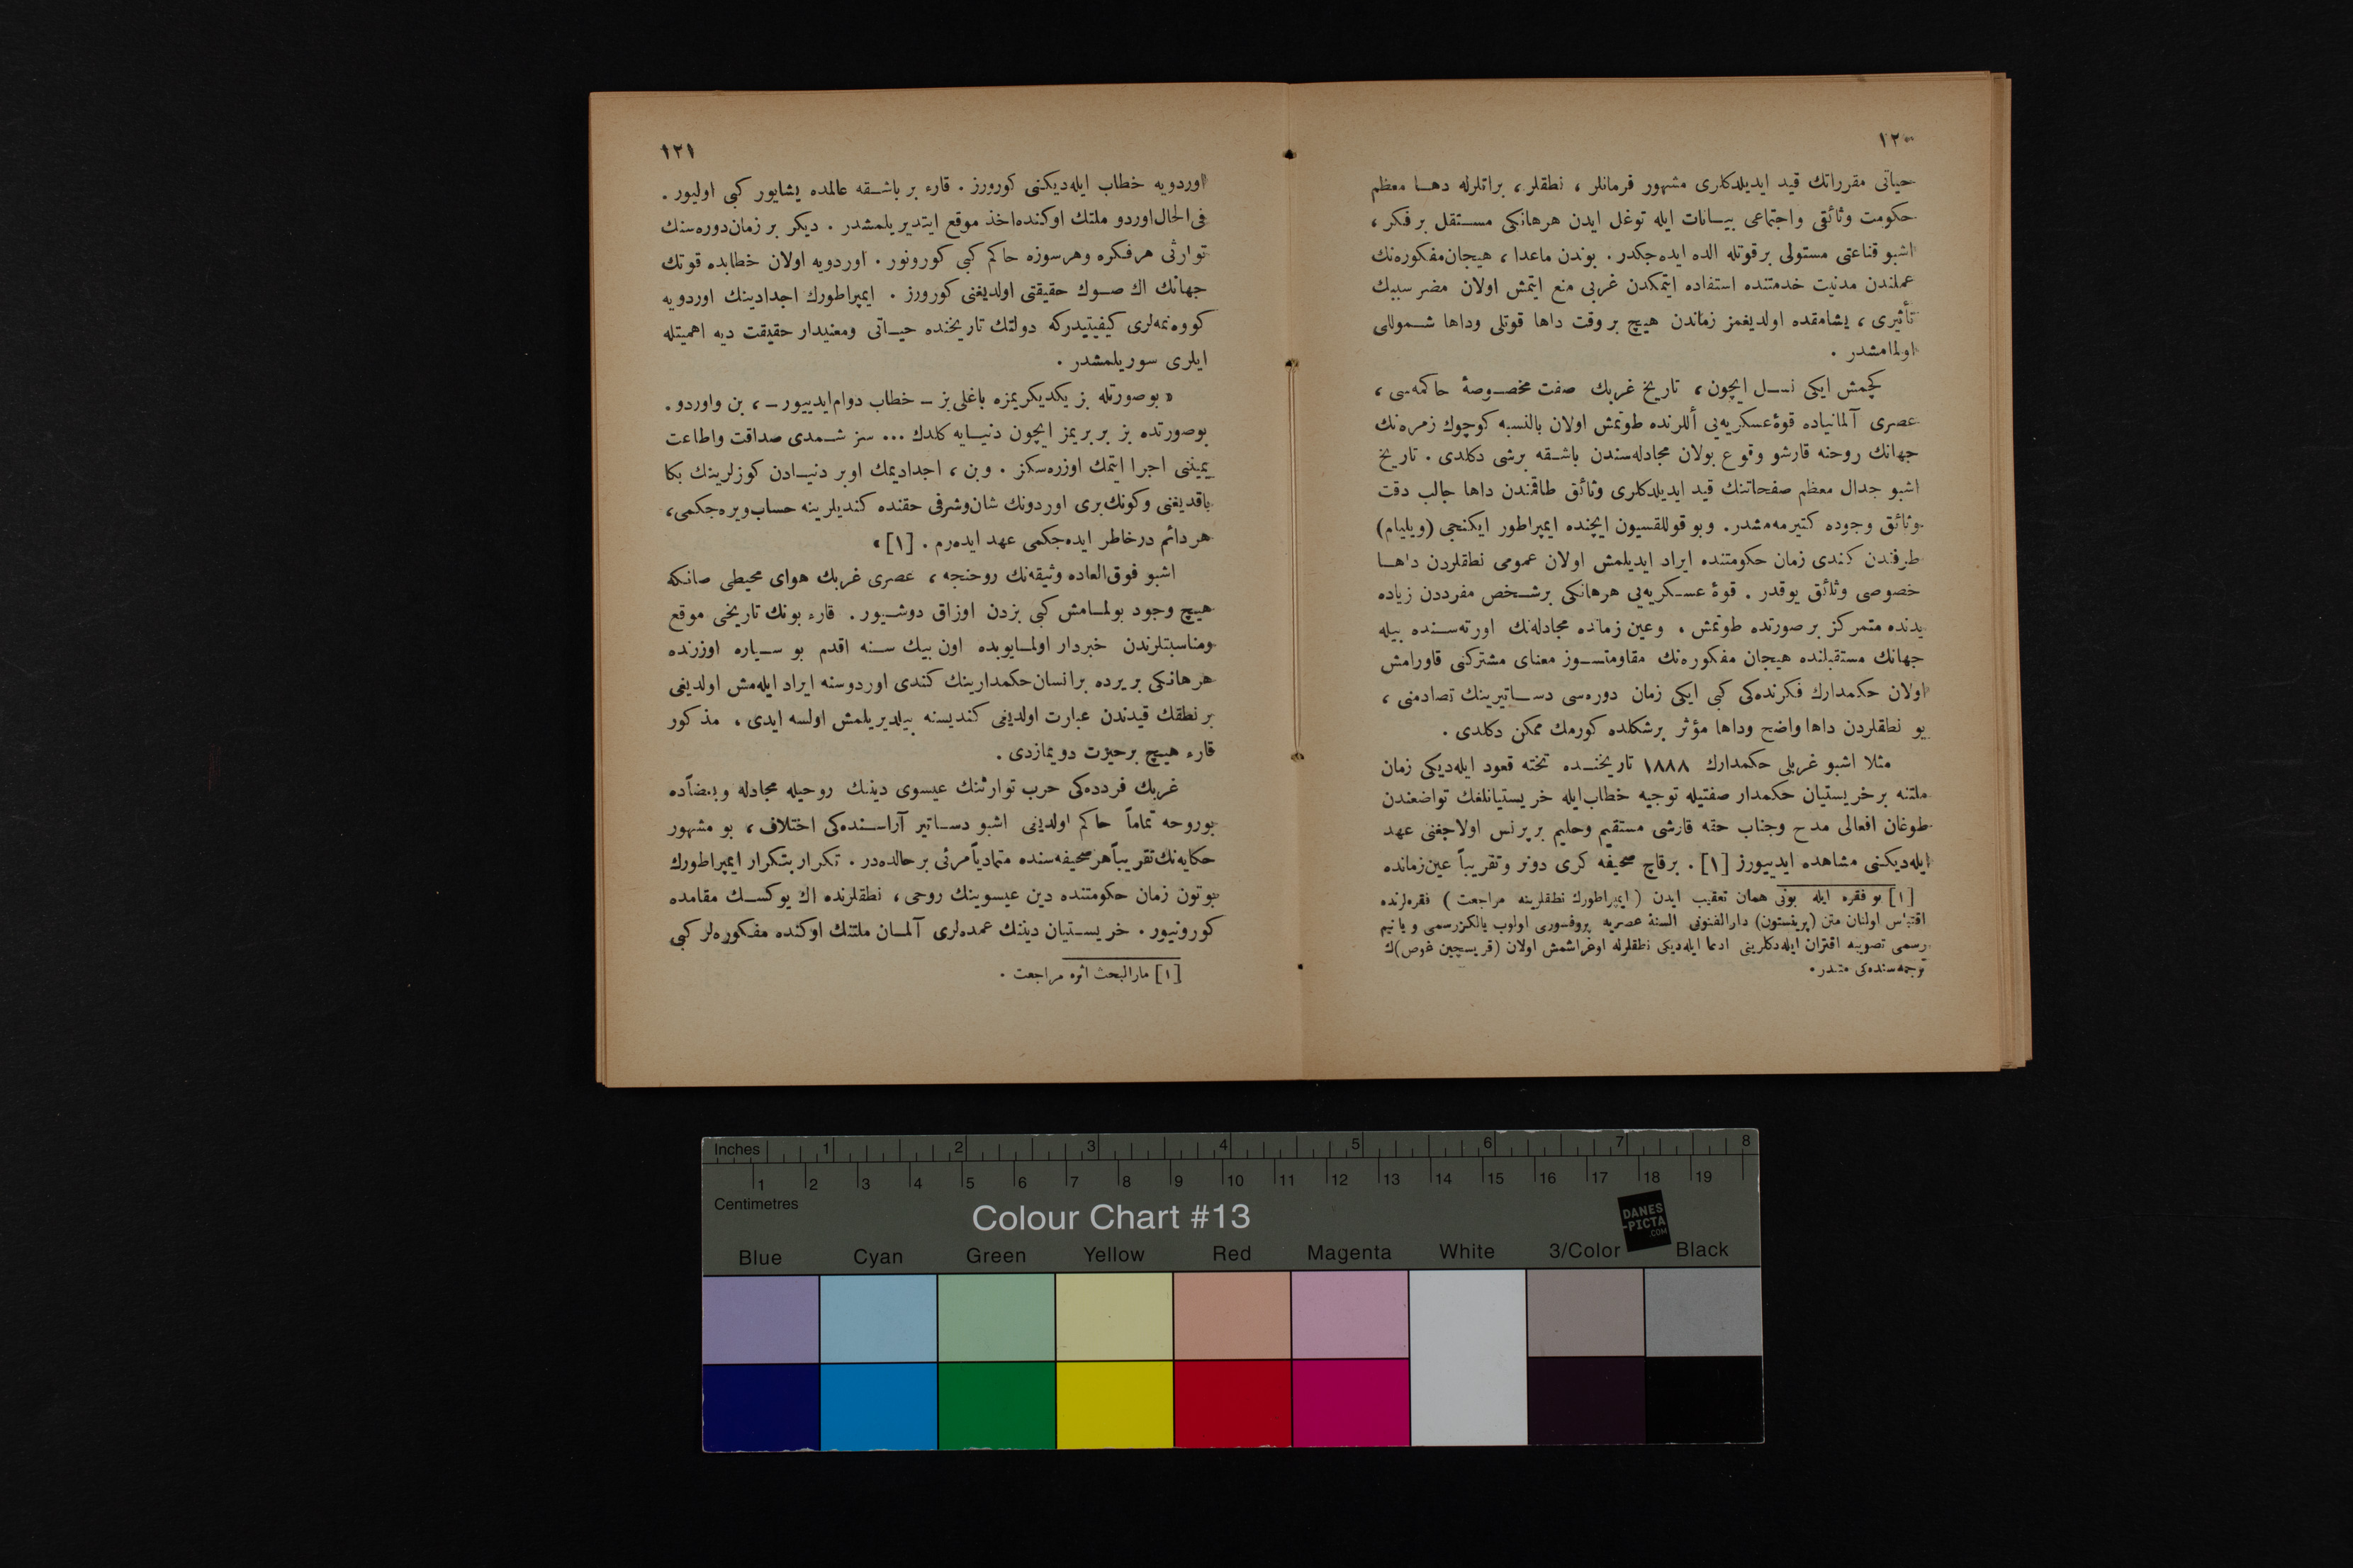 ١٢٠
حياتی مقرراتك قيد ايديلدكلری مشهور فرمانلر ، نطقلر ، براتلرله دهـا معظم
حكومت وثائقی واجتماعی بيـانات ايله توغل ايدن هرهانكی مسـتقل بر فكر ،
اشبو قناعتی مستولی برقوتله الده ايده‌جكدر . بوندن ماعدا ، هيجان‌مفكوره‌نك
عملندن مدنيت خدمتنده استفاده ايتمكدن غربی منع ايتمش اولان مضر سببك
تأثيری ، يشامقده اولديغمز زماندن هيچ بر وقت داها قوتلی وداها شـموللی
اولمامشدر .
كچمش ايكی نـل ايچون ، تاريخ غربك صفت مخصـوصهٔ حاكمه‌سی ،
عصری آلمانياده قوهٔ‌عسكريه‌يی أللرنده طوتمش اولان بالنسبه كوچوك زمره‌نك
جهانك روحنه قارشو وقوع بولان مجادله‌سندن باشـقه برشی دكلدی . تاريخ
اشبو جدال معظم صفحاتنك قيد ايديلدكلری وثائق طاقمندن داها جالب دقت
وثائق وجوده كتيرمه‌مشدر . وبو قوللقسيون ايچنده ايمپراطور ايكنجی (ويليام)
طرفندن كندی زمان حكومتنده ايراد ايديلمش اولان عمومی نطقلردن داهـا
خصوصی وثائق يوقدر . قوهٔ عسـكريه‌يی هرهانكی برشـخص مفرددن زياده
يدنده متمركز بر صورتده طوتمش . وعين زمانده مجادله‌نك اورته‌سـنده بيله
جهانك مستقبلنده هيجان مفكوره‌نك مقاومتسـوز معنای مشتركنی قاورامش
اولان حكمدارك فكرنده‌كی كبی ايكی زمان دوره‌سی دسـاتيرينك تصادمنی ،
بو نطقلردن داها واضح وداها مؤثر برشكلده كورمك ممكن دكلدی .
مثلا اشبو غربلی حكمدارك ١٨٨٨ تاريخنـده تخته قعود ايله‌ديكی زمان
ملتنه بر خريستيان حكمدار صفتيله توجيه خطاب‌ايله خريستيانلغك تواضعندن
طوغان افعالی مدح وجناب حقه قارشی مستقيم وحليم بر پرنس اولاجغنی عهد
ايله‌ديكنی مشاهده ايدييورز [١] . برقاچ صحيفه كری دونر وتقريباً عين‌زمانده
[١] بو فقره ايله بونی همان تعقيب ايدن (ايمپراطورك نطقلرينه مراجعت) فقره‌لرنده
اقتباس اولنان متن (پرينستون) دارالفنونی السنهٔ عصريه پروفسوری اولوب يالكزرسمی ويا نيم
رسمی تصويبه اقتران ايله‌دكلرينی ادعا ايله‌ديكی نطقلرله اوغراشمش اولان (قريسچين غوص)ك
ترجمه‌سنده‌كی متندر .
١٢١
اوردويه خطاب ايله‌ديكنی كورورز . قارء بر باشـقه عالمده يشايور كبی اوليور .
فی‌الحال‌اوردو ملتك اوكنده‌اخذ موقع ايتديريلمشدر . ديكر بر زمان‌دوره‌سنك
توارثی هرفكره وهرسوزه حاكم كبی كورونور . اوردويه اولان خطابده قوتك
جهانك اك صـوك حقيقتی اولديغنی كورورز . ايمپراطورك اجدادينك اوردويه
كووه‌نمه‌لری كيفيتيدركه دولتك تاريخنده حيـاتی ومعنيدار حقيقت ديه اهميتله
ايلری سوريلمشدر .
« بوصورتله بز يكديكريمزه باغلی‌يز ـ خطاب دوام‌ايدييور ـ ، بن واوردو .
بوصورتده بز بربريمز ايچون دنيـايه كلدك ... سز شـمدی صداقت واطاعت
يمينی اجرا ايتمك اوزره‌سكز . وبن ، اجداديمك اوبر دنيـادن كوزلرينك بكا
باقديغنی وكونك‌بری اوردونك شان‌وشرفی حقنده كنديلرينه حساب‌ويره‌جكمی ،
هر دائم درخاطر ايده‌جكمی عهد ايده‌رم . [١] »
اشبو فوق‌العاده وثيقه‌نك روحنجه ، عصری غربك هوای محيطی صانكه
هيچ وجود بولمـامش كبی بزدن اوزاق دوشـيور . قارء بونك تاريخی موقع
ومناسبتلرندن خبردار اولمـايوبده اون بيك سـنه اقدم بو سـياره اوزرنده
هرهانكی بريرده برانسان‌حكمدارينك كندی اوردوسنه ايراد ايله‌مش اولديغی
بر نطقك قيدندن عبارت اولديغی كنديسنه بيلديريلمش اولسه ايدی ، مذكور
قارء هيچ برحيرت دويمازدی .
غربك فردده‌كی حرب توارثنك عيسوی دينك روحيله مجادله وبعضاًده
بوروحه تماماً حاكم اولديغی اشبو دسـاتير آراسـنده‌كی اختلاف ، بو مشهور
حكايه‌نك‌تقريباًهرصحيفه‌سنده متمادياًمرئی برحالده‌در . تكرار بتكرار ايمپراطورك
بوتون زمان حكومتنده دين عيسوينك روحی ، نطقلرنده اك يوكسـك مقامده
كورونيور . خريسـتيان دينك عمده‌لری آلمـان ملتنك اوكنده مفكوره‌لر كبی
[١] مارالبحث اثره مراجعت .
Inches 1 2 3 4 5 6 7 8
1 2 3 4 5 6 7 8 9 10 11 12 13 14 15 16 17 18 19
Centimetres
Colour Chart #13
DANES
-PICTA
.COM
Blue Cyan Green Yellow Red Magenta White 3/Color Black